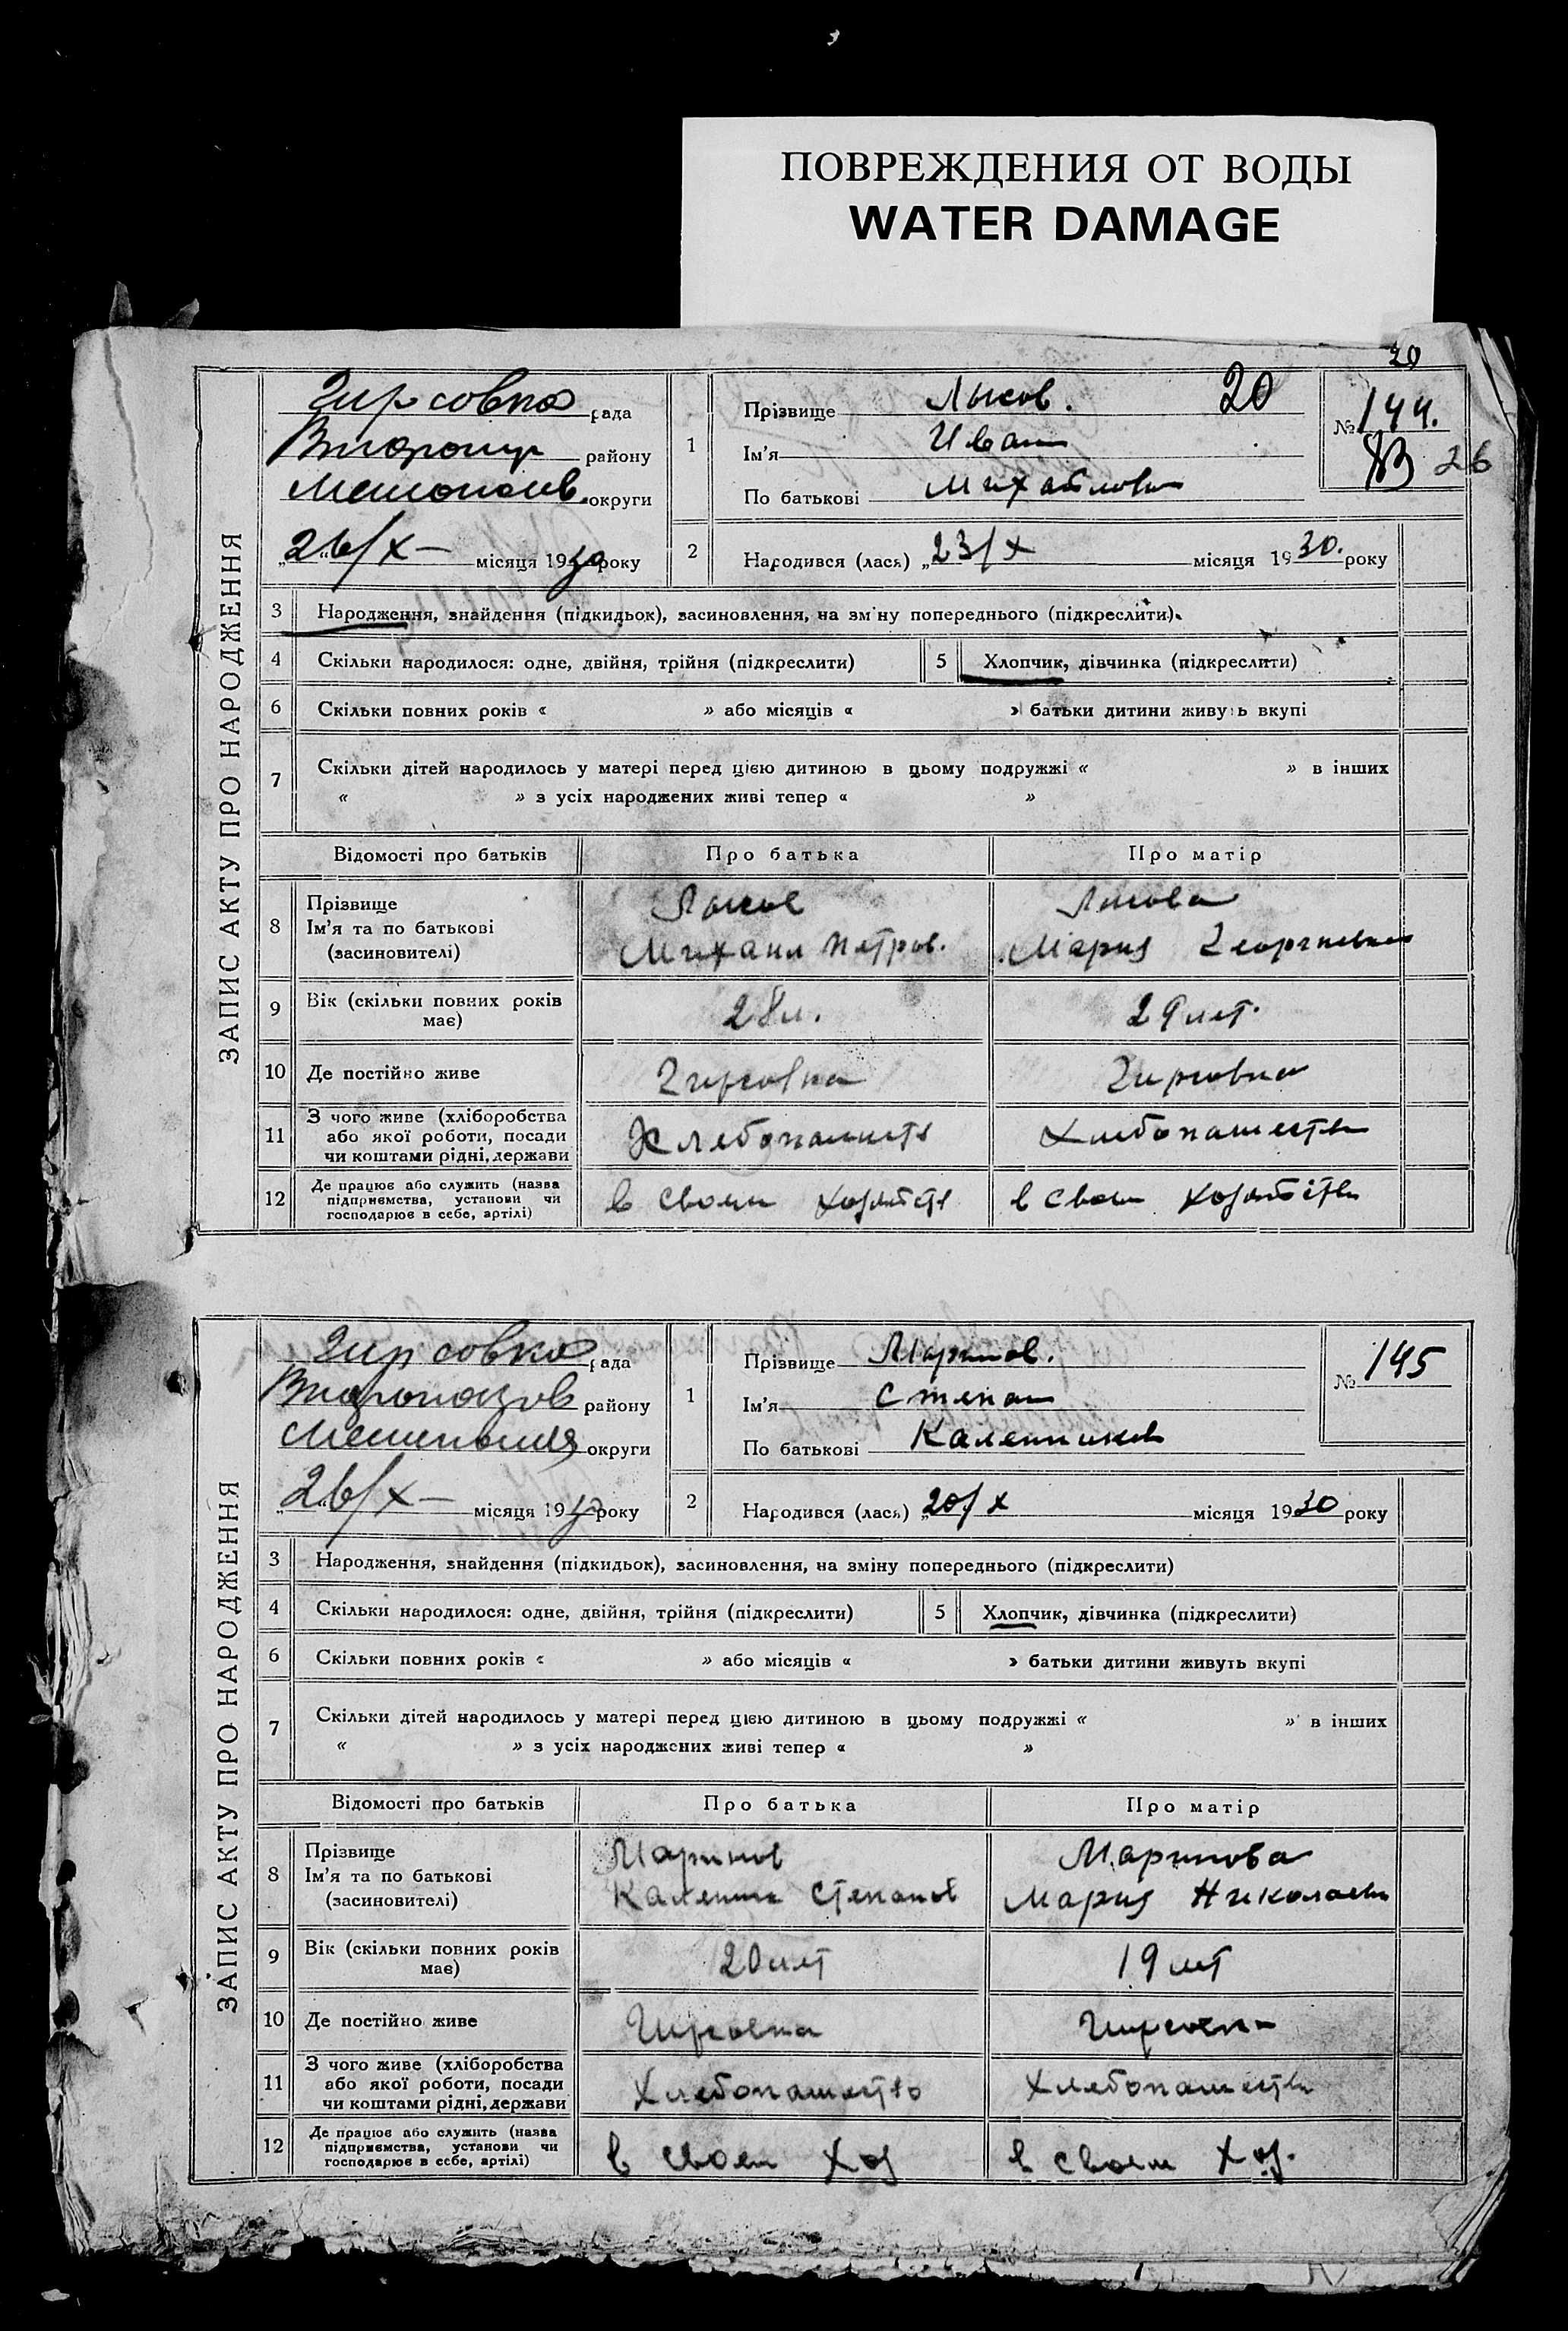 ПОВРЕЖДЕНИЯ ОТ ВОДЫ
WATER DAMAGE
20
ЗАПИС АКТУ ПРО НАРОДЖЕННЯ
Гирсовка рада
району
округи
26/X — місяця 1930 року
1
Прізвище Лысов. 20
Ім'я Иван
По батькові Михайлович
№ 144.
83 26
2 Народився (лася) „23/X місяця 1930. року
3 Народження, знайдення (підкидьок), засиновлення, на зміну попереднього (підкреслити)
4 Скільки народилося: одне, двійня, трійня (підкреслити) 5 Хлопчик, дівчинка (підкреслити)
6 Скільки повних років « » або місяців « » батьки дитини живуть вкупі
7 Скільки дітей народилось у матері перед цією дитиною в цьому подружжі « » в інших
« » з усіх народжених живі тепер « »
Відомості про батьків Про батька Про матір
8 Прізвище Лысов Лысова
Ім'я та по батькові Михаил Петров. Мария Георгиевна
(засновителі)
9 Вік (скільки повних років має) 28 л. 29 лет.
10 Де постійно живе Гирсовка Гирсовка
11 З чого живе (хліборобства або якої роботи, посади чи коштами рідні, держави Хлебопашеств Хлебопашеств
12 Де працює або служить (назва підприємства, установи чи господарює в себе, артілі) в своем хозяйств в своем хозяйств
ЗАПИС АКТУ ПРО НАРОДЖЕННЯ
Гирсовка рада
району
округи
26/X — місяця 1930 року
1
Прізвище Маринов.
Ім'я Степан
По батькові Каленников
№ 145
2 Народився (лася) „20/X місяця 1930 року
3 Народження, знайдення (підкидьок), засиновлення, на зміну попереднього (підкреслити)
4 Скільки народилося: одне, двійня, трійня (підкреслити) 5 Хлопчик, дівчинка (підкреслити)
6 Скільки повних років « » або місяців « » батьки дитини живуть вкупі
7 Скільки дітей народилось у матері перед цією дитиною в цьому подружжі « » в інших
« » з усіх народжених живі тепер « »
Відомості про батьків Про батька Про матір
8 Прізвище Маринов Маринова
Ім'я та по батькові Каленик Степанов Мария Николаевн
(засиновителі)
9 Вік (скільки повних років має) 20 лет 19 лет
10 Де постійно живе Гирсовка Гирсовка
11 З чого живе (хліборобства або якої роботи, посади чи коштами рідні, держави Хлебопашество Хлебопашеств
12 Де працює або служить (назва підприємства, установи чи господарює в себе, артілі) в своем хоз в своем хоз.